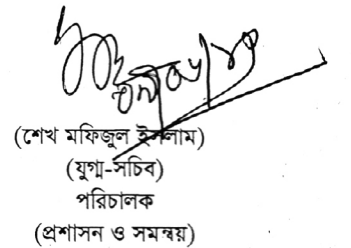 (শেখ মফিজুল ইসলাম)
(যুগ্ম-সচিব)
পরিচালক
(প্রশাসন ও সমন্বয়)